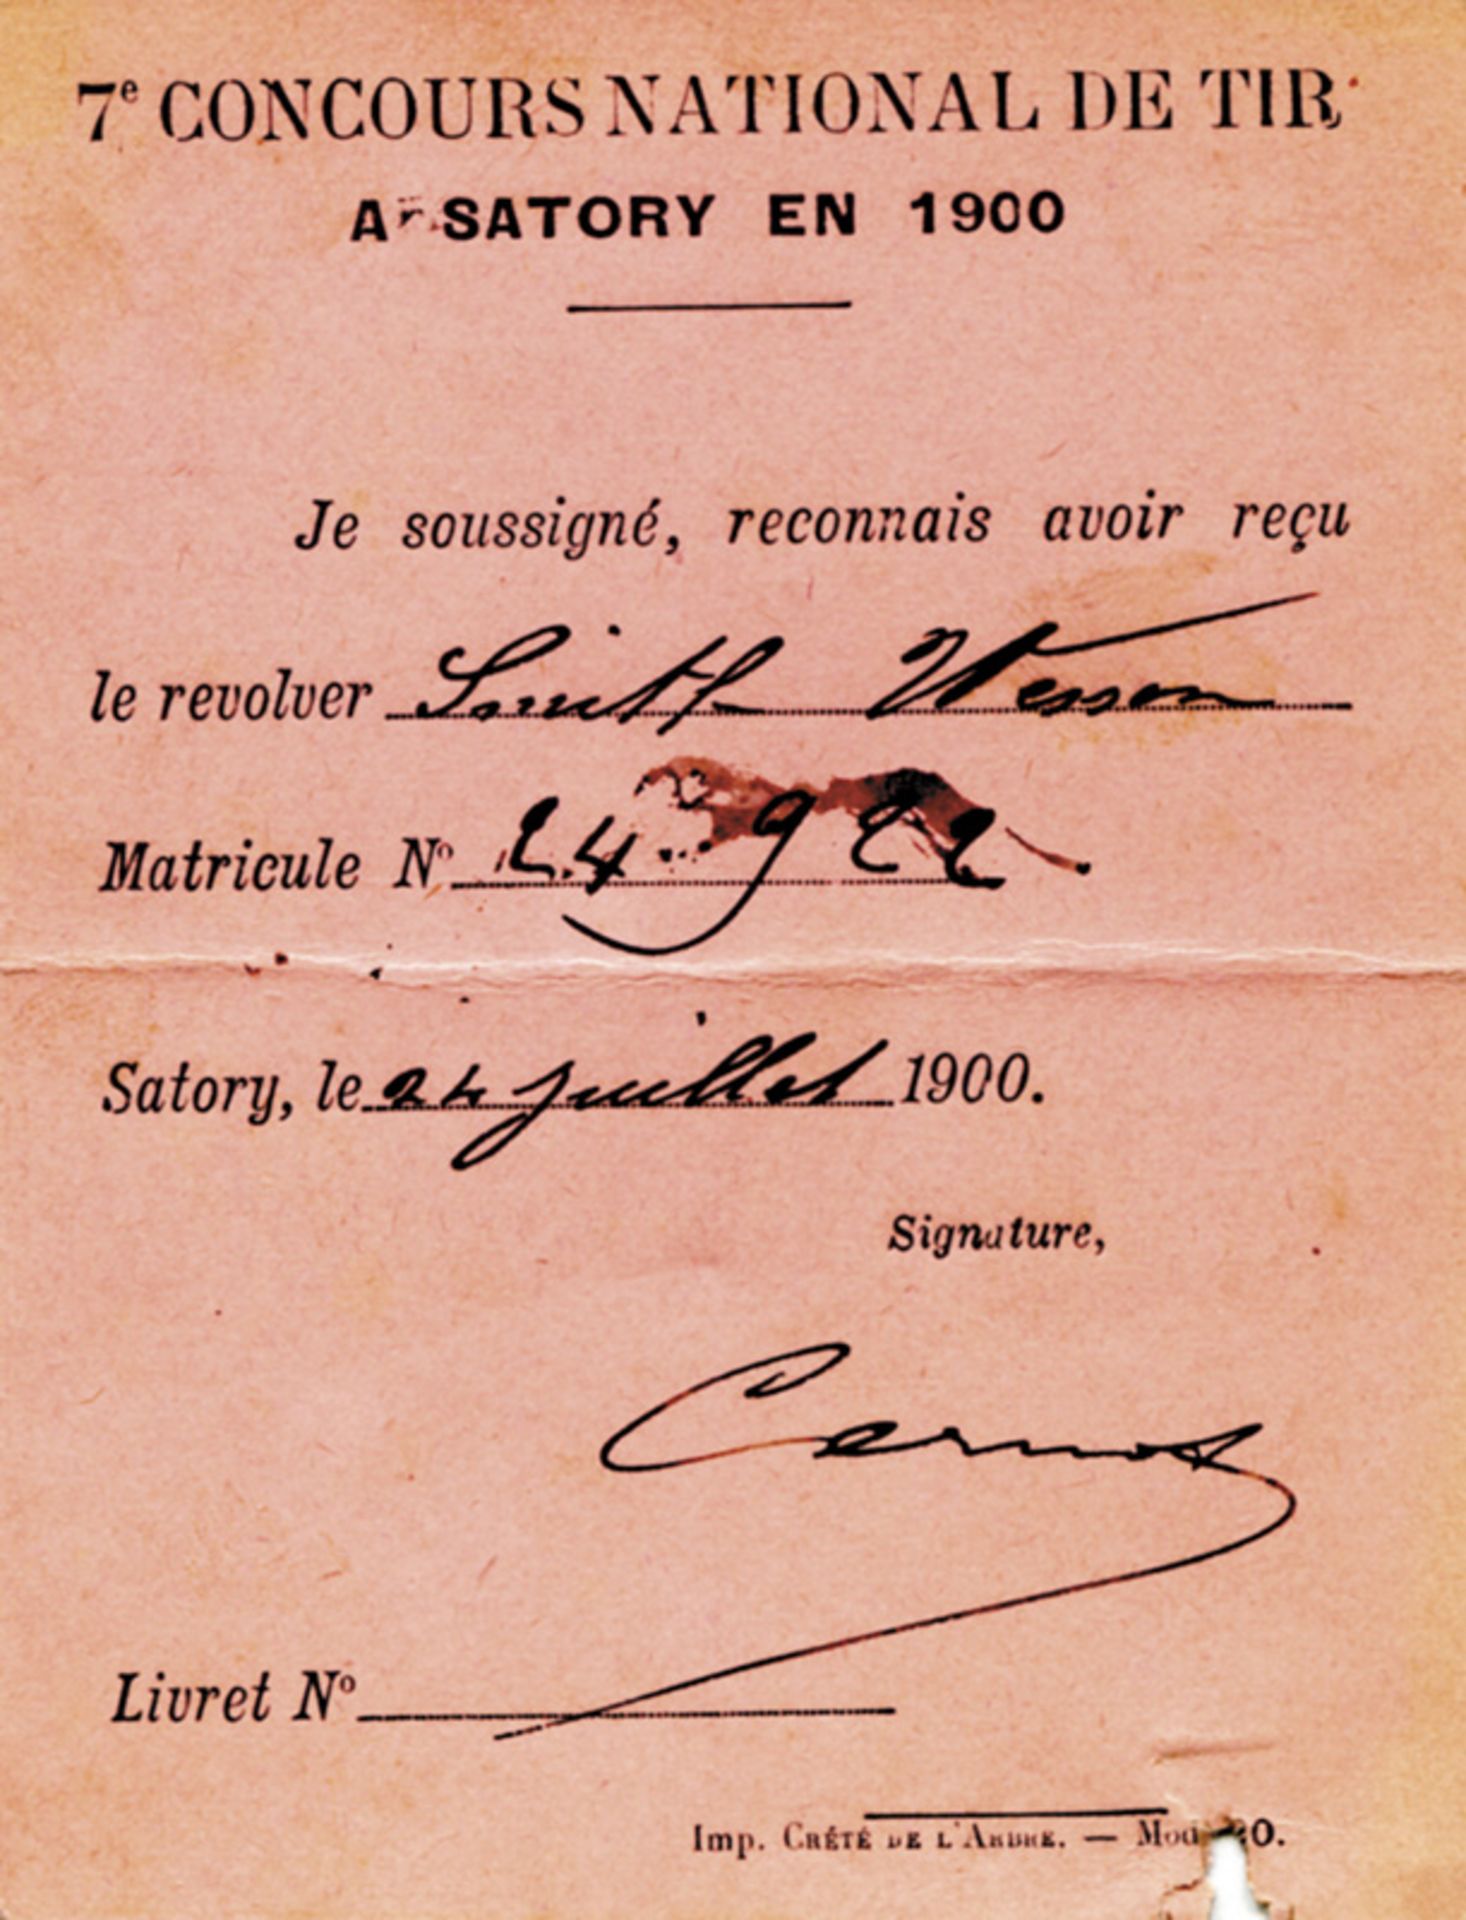 7e CONCOURS NATIONAL DE TIR
A SATORY EN 1900
Je soussigné, reconnais avoir reçu
le revolver Smith Wesson
Matricule No 24.922
Satory, le 24 juillet 1900.
Signature,
Carnot
Livret No
Imp. CRÉTÉ DE L'ARBRE. —